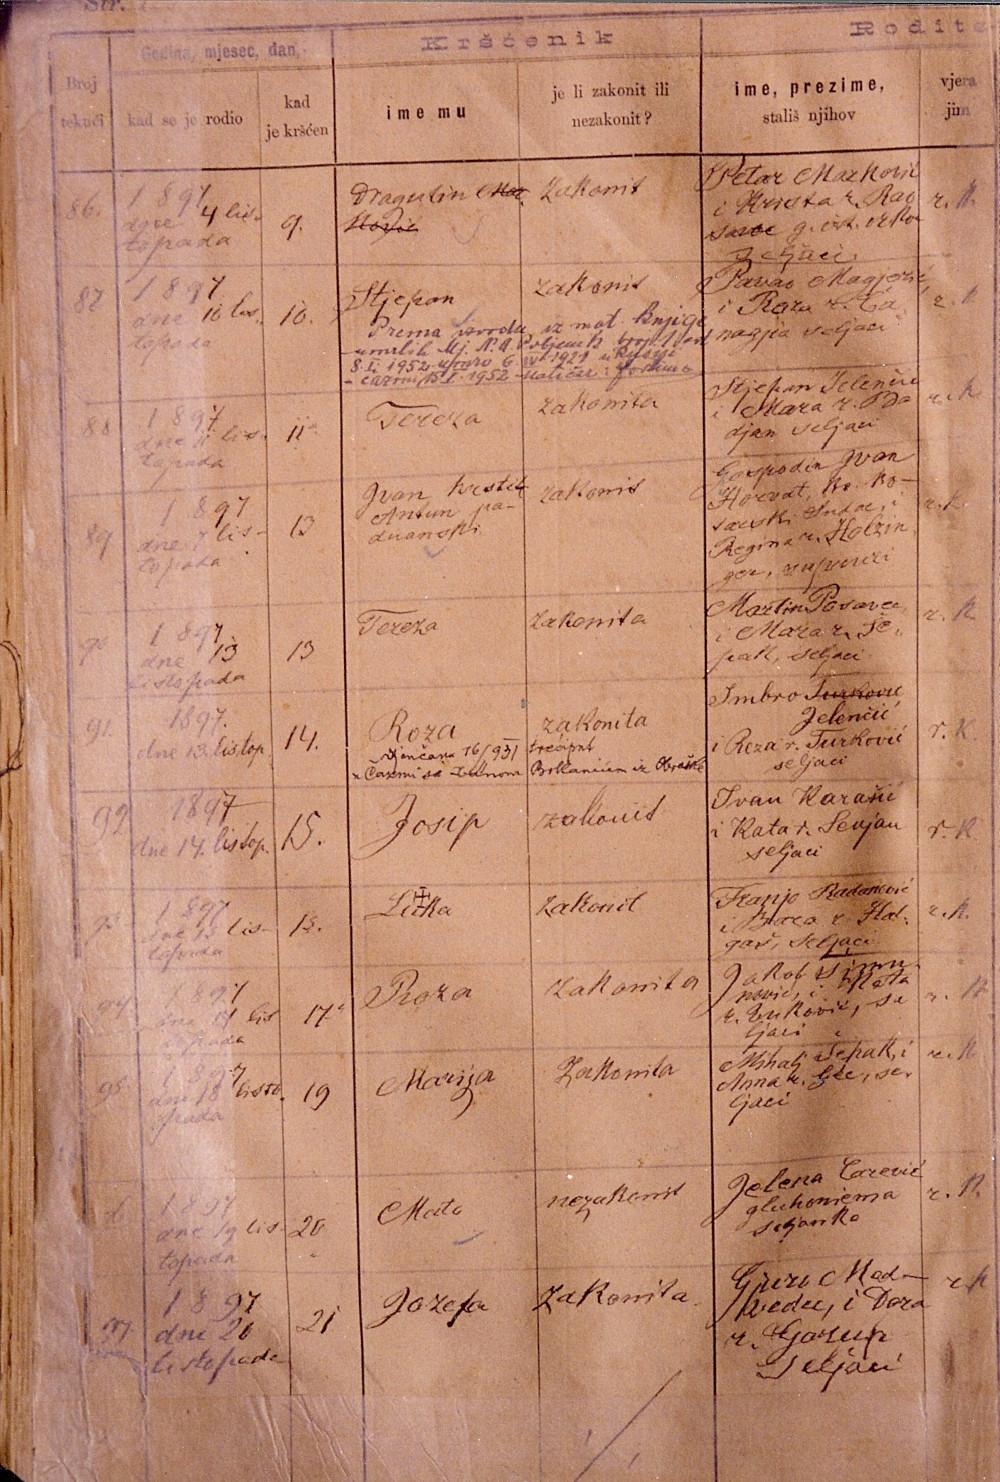 Str.
Kršćenik
Rodite
Broj
tekući
Godina, mjesec, dan,
kad se je rodio
kad
je kršćen
ime mu
je li zakonit ili
nezakonit?
ime, prezime,
stališ njihov
vjera
jim
86.
1897
dne 4 lis-
topada
9.
Dragutin
zakonit
Petar Marković
i Krista r.
seljaci
r. K.
87
1897
dne 10 lis.
topada
10.
Stjepan
Prema izvodu iz mat. knjige
umrlih
8.I. 1952 umro 6. IV 1921 u
Čazmi, 15.I.1952 Matičar:
zakonit
Pavao
i Roza r.
seljaci
r. K
88
1897
dne 11 lis.
topada
11
Tereza
zakonita
Stjepan Jelenčić
i Mara r. Ba
djan seljaci
r. K.
89
1897
dne 7 lis-
topada
13
Ivan Krstit.
Antun pa-
duanski
zakonit
Gospodin Ivan
Horvat, kr. ko-
tarski sudac, i
Regina r. Holzin
ger,
r. K.
90
1897
dne 13
listopada
13
Tereza
zakonita
Martin Posavec
i Mara r. Še.
pak, seljaci
r. K
91.
1897.
dne 13. listop.
14.
Roza
Vjenčana 16/ 931
u Čazmi sa
zakonita
iz
Imbro Turković
Jelenčić
i Reza r. Turković
seljaci
r. K.
92
1897
dne 14. listop.
15.
Josip
zakonit
Ivan Karašić
i Kata r.
seljaci
r. K.
93
1897
dne 15 lis-
topada
15.
Luka
zakonit
Franjo Radanović
i Bara r.
seljaci
r. K.
94
1897
dne 17 lis
topada
17.
Roza
zakonita
Jakob Simu
nović, i Kata
r. Vuković, se
ljaci
r. K
95
1897
dne 18 listo.
pada
19
Marija
zakonita
Mihalj Šepak, i
Anna r. se-
ljaci
r. K
96
1897
dne 19 lis-
topada
20
Mato
nezakonit
Jelena Carević
gluhoniema
seljanka
r. K.
97
1897
dne 20
listopada
21
Jozefa
zakonita
Gjuro Med-
vedec, i Dora
r. Gašup
seljaci
r. K